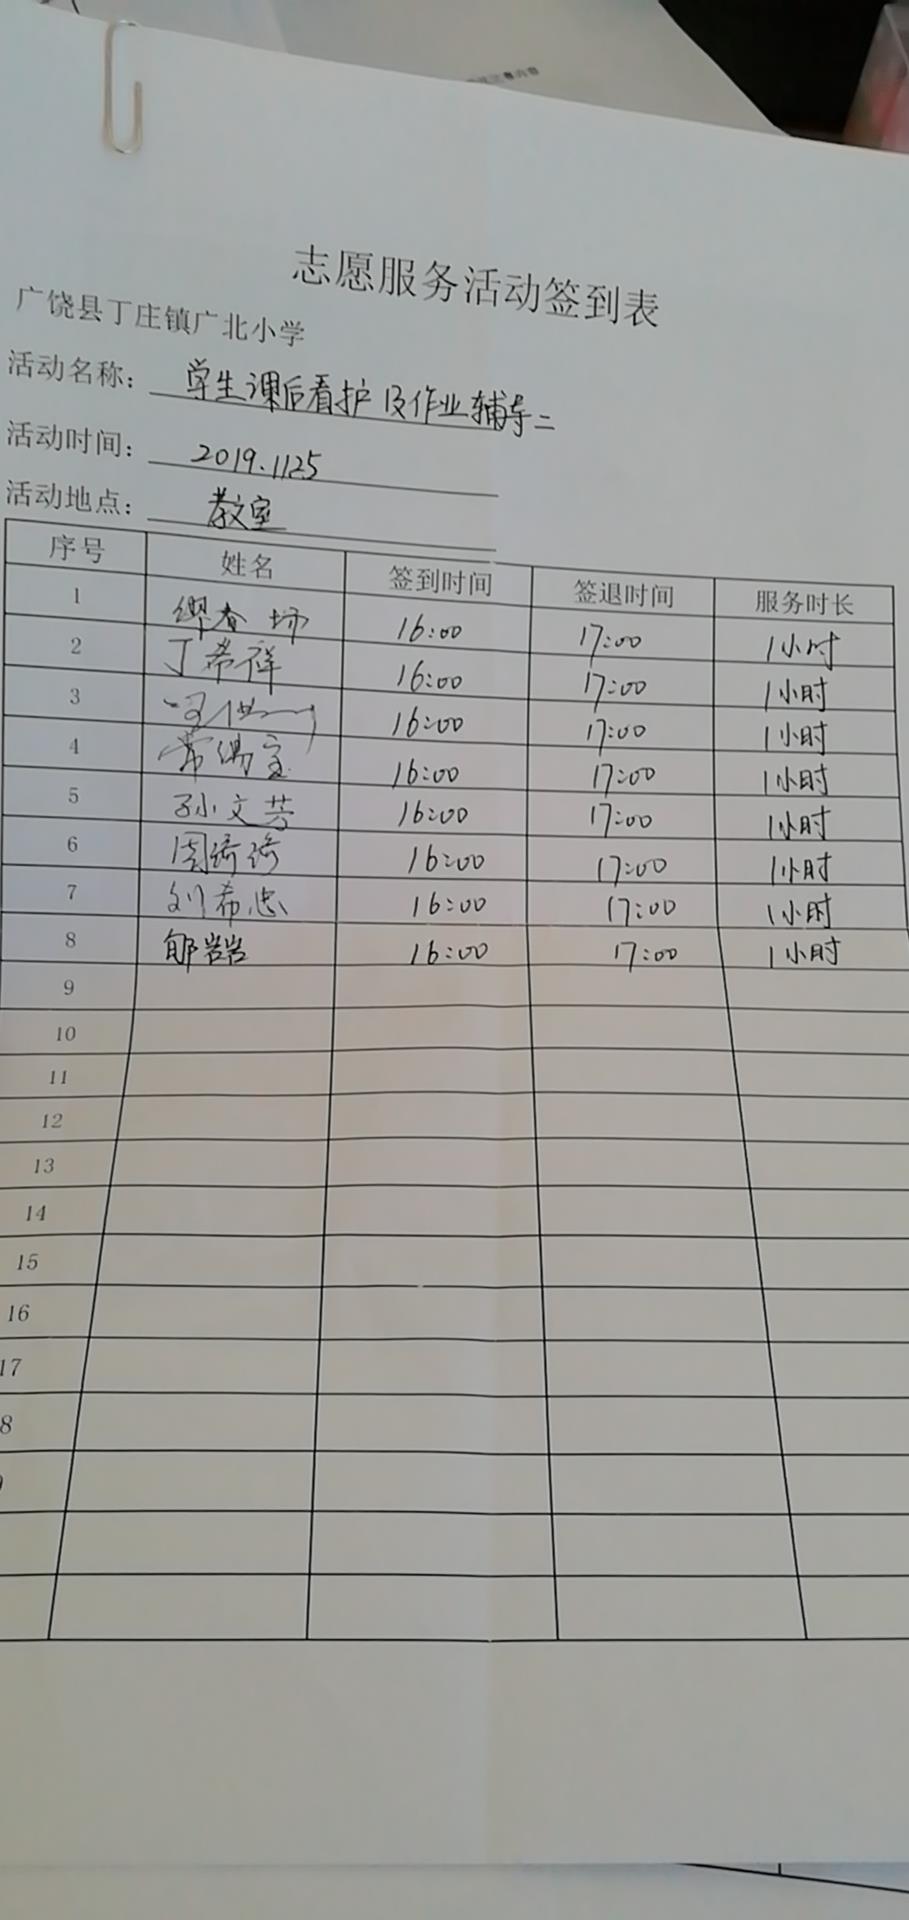 志愿服务活动签到表
广饶县丁庄镇广北小学
活动名称: 学生课后看护及作业辅导二
活动时间: 2019.1125
活动地点: 教室
序号 姓名 签到时间 签退时间 服务时长
1 16:00 17:00 1小时
2 丁希祥 16:00 17:00 1小时
3 16:00 17:00 1小时
4 16:00 17:00 1小时
5 孙文芳 16:00 17:00 1小时
6 周绮绮 16:00 17:00 1小时
7 刘希忠 16:00 17:00 1小时
8 郇岩岩 16:00 17:00 1小时
9
10
11
12
13
14
15
16
17
8